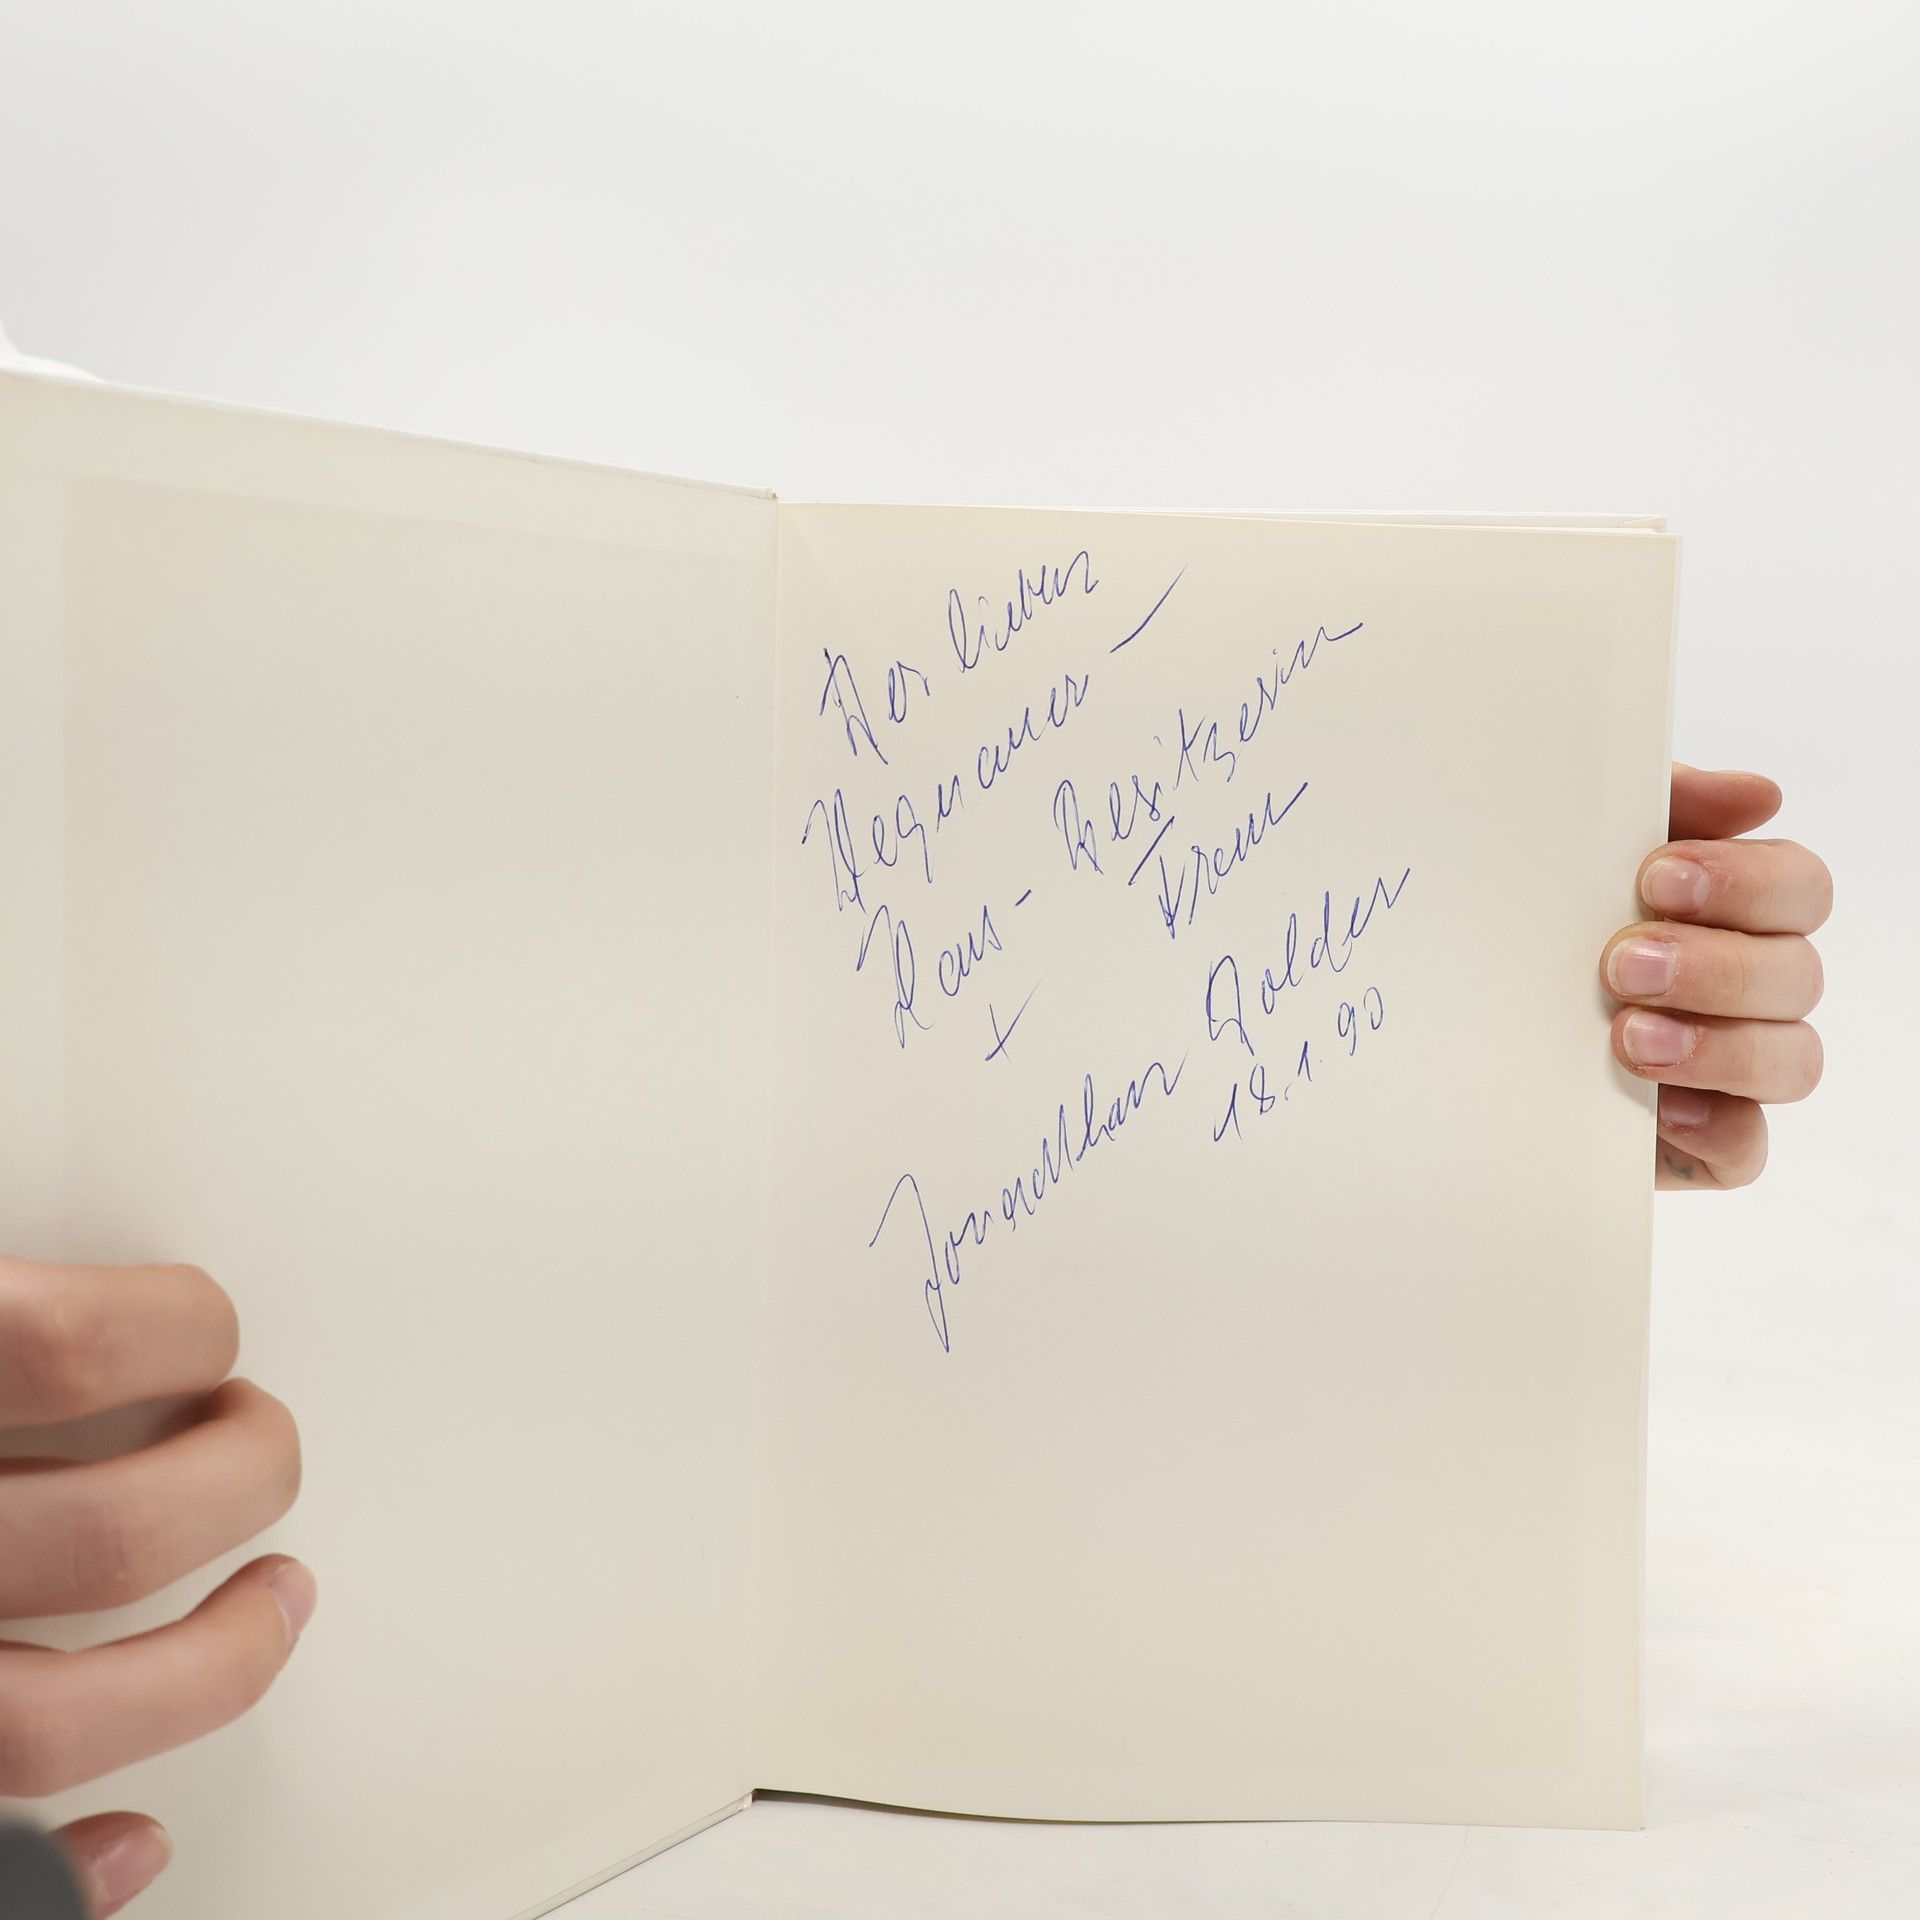 Der lieben
Hegnauer -
Haus - Besitzerin
+
Jonathan Golder
18.1.90